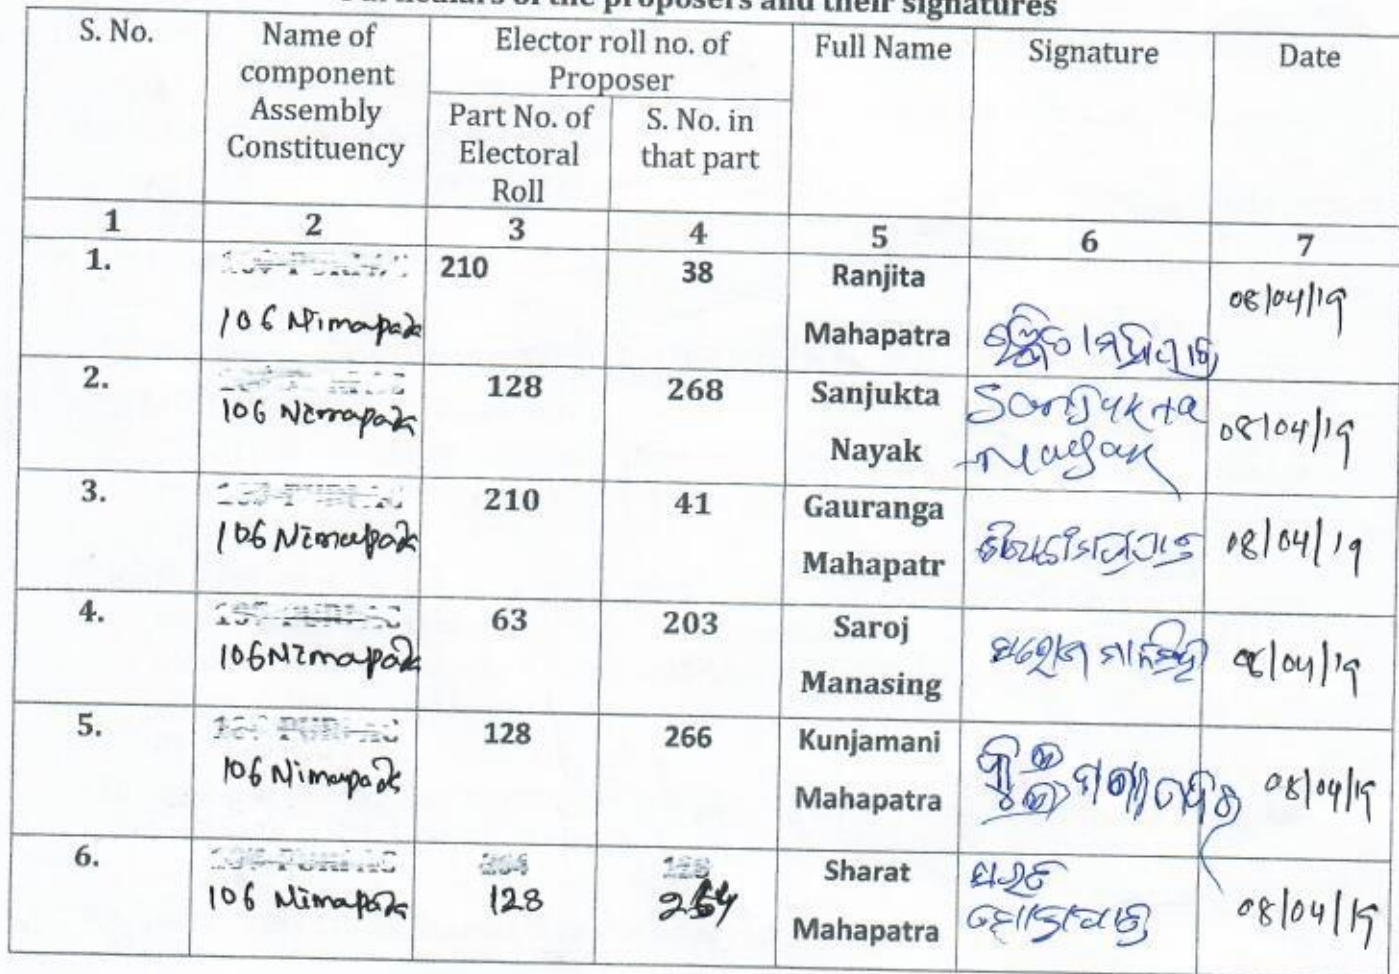 Particulars of the proposers and their signatures
S. No.
Name of
component
Assembly
Constituency
Elector roll no. of
Proposer
Part No. of
Electoral
Roll
S. No. in
that part
Full Name
Signature
Date
1 2 3 4 5 6 7
1.
106 Nimapada
210 38
Ranjita
Mahapatra
08/04/19
2.
106 Nimapada
128 268
Sanjukta
Nayak
Sanjukta
Nayak
08/04/19
3.
106 Nimapada
210 41
Gauranga
Mahapatr
08/04/19
4.
106 Nimapada
63 203
Saroj
Manasing
08/04/19
5.
106 Nimapada
128 266
Kunjamani
Mahapatra
08/04/19
6.
106 Nimapada
128
Sharat
Mahapatra
ଶରତ
08/04/19